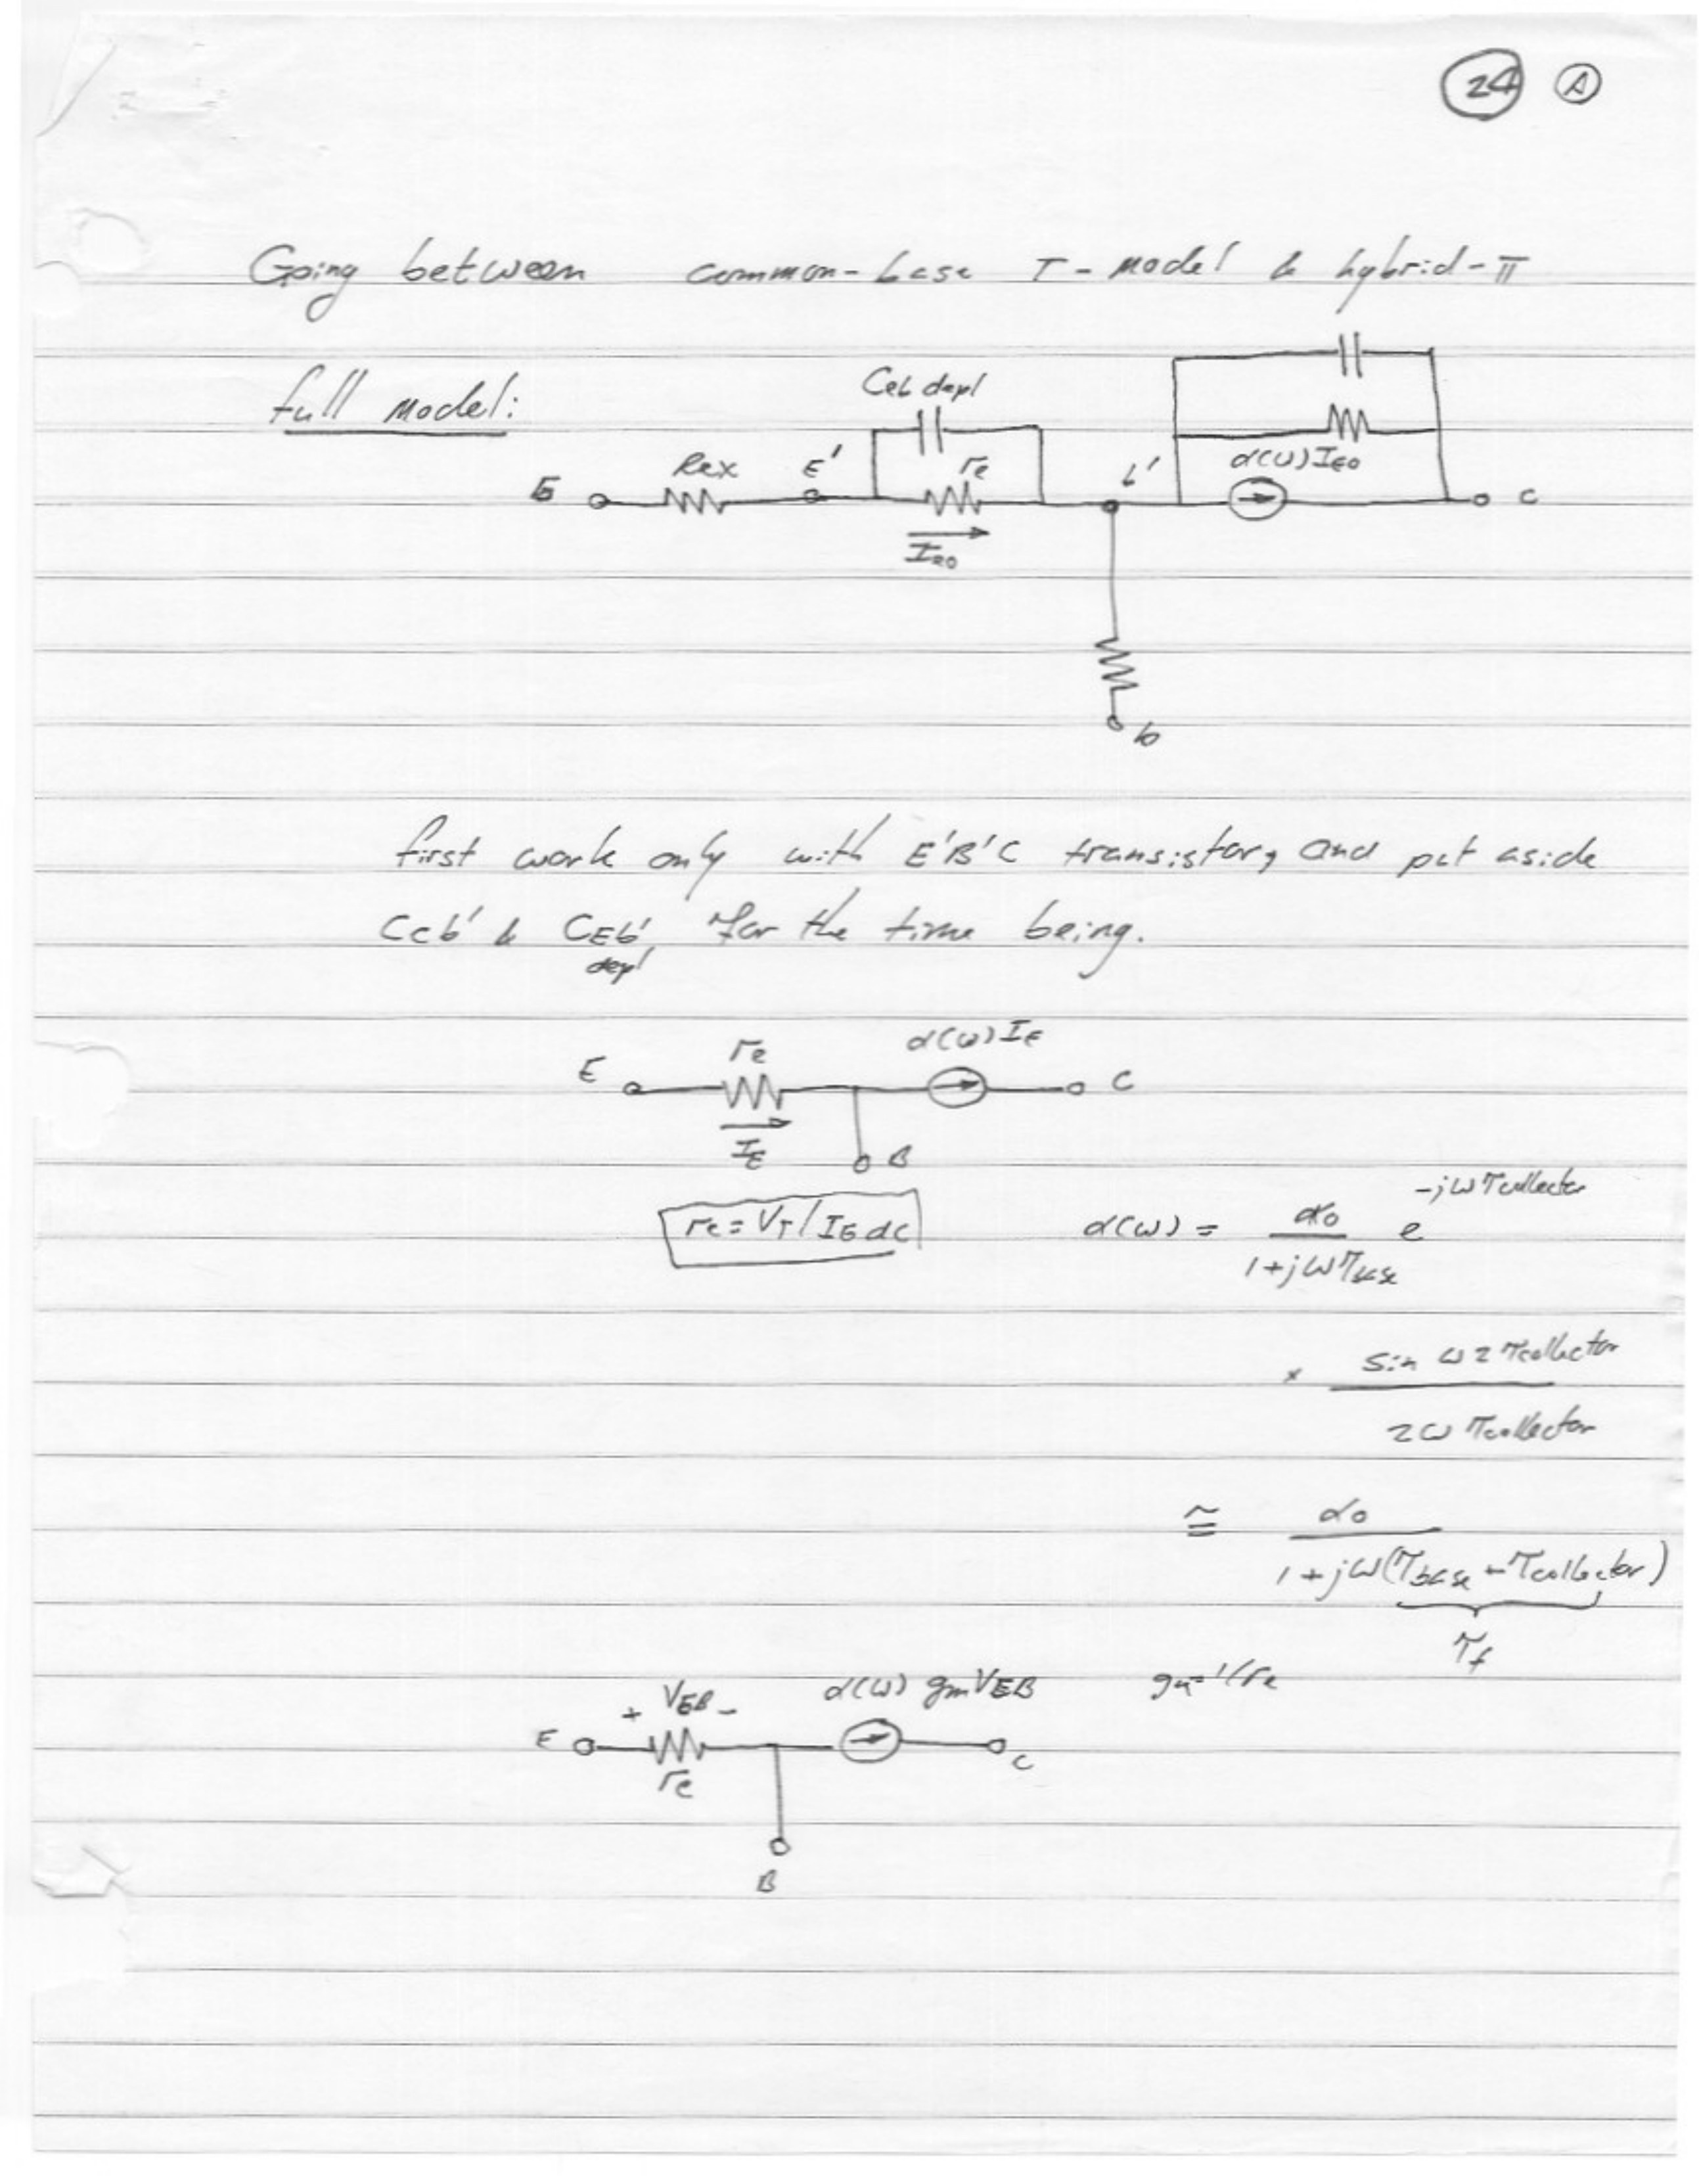 24 A
Going between common-base T-model & hybrid-π
full model:
Ceb depl
α(ω)IE0
Rex E' re b'
E C
IE0
b
first work only with E'B'C transistor, and put aside
Ccb' & CEb', for the time being.
depl
re α(ω)IE
E C
IE B
re = VT/IE dc
α(ω) = α0 / 1+jωτbase e -jωτcollector
× sin ω2τcollector / 2ωτcollector
≅ α0 / 1+jω(τbase + τcollector)
τf
+ VEB - α(ω) gmVEB gm=1/re
E C
re
B